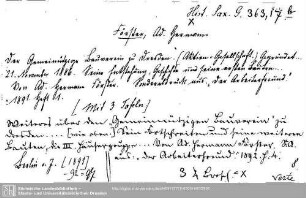 Hist. Sax. G. 363, 17 b
Förster, Ad. Hermann
Der Gemeinnützige Bauverein zu Dresden (Aktien-Gesellschaft) Gegründet
21. November 1886. Seine Entstehung, Geschichte und seine ersten Bauten.
Von Ad. Hermann Förster. Sonderabdruck aus "Der Arbeiterfreund"
1891 Heft
(Mit 3 Tafeln)
Weiteres über den Gemeinnützigen Bauverein zu
Dresden ... [wie oben] Sein Fortschreiten und seine weiteren
Bauten, die III. Häusergruppe. Von Ad. Hermann Förster. S.A.
aus: der Arbeiterfreund 1892, H. 4. 8.
Berlin o. J. (1891)
91 – 92
3